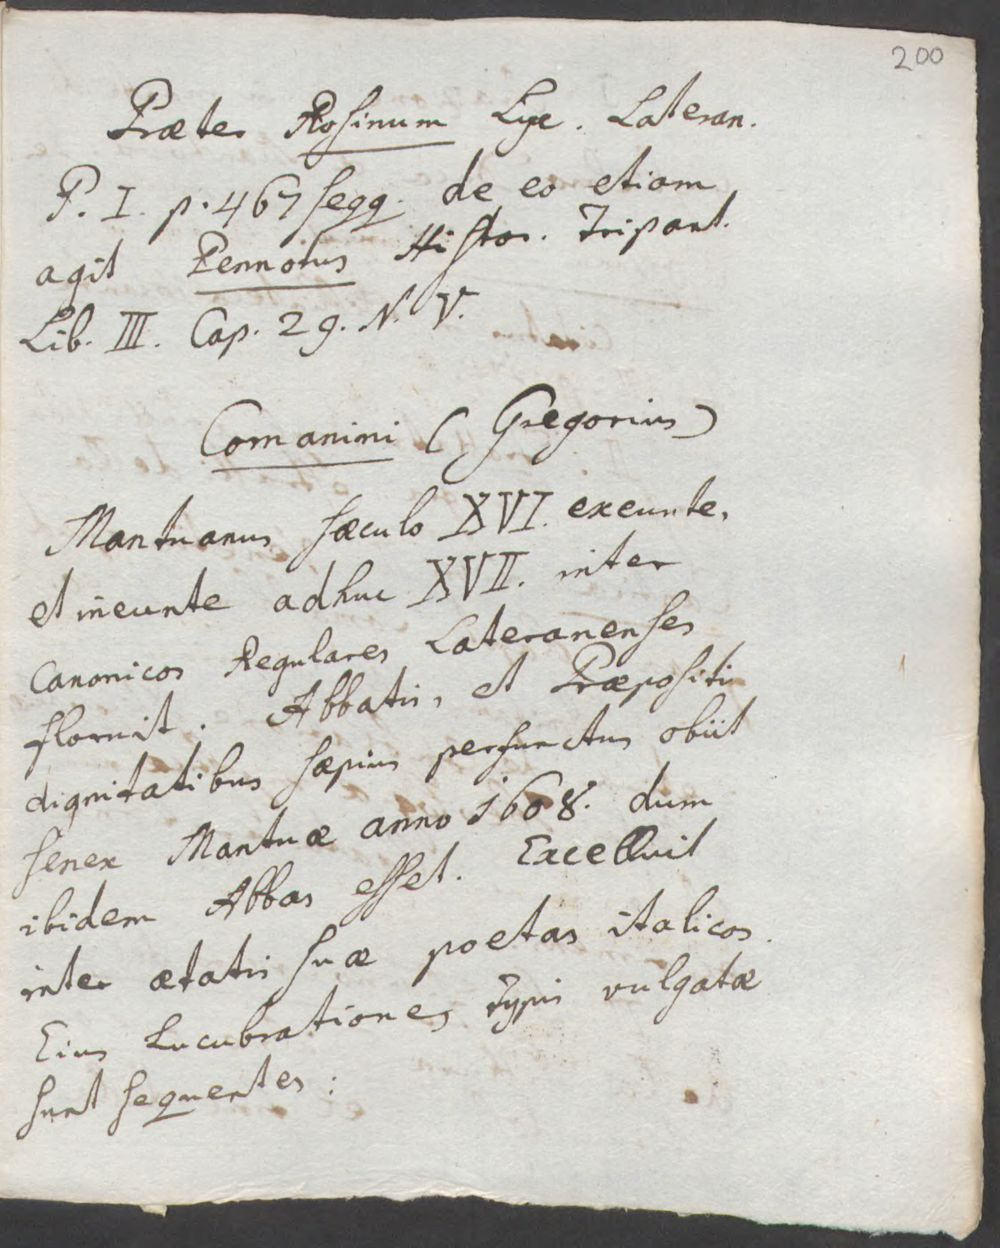 200
Præter Rosinum Lyc. Lateran.
P. I. p. 467 seqq. de eo etiam
agit Pennotus Histor. Tripart.
Lib. III. Cap. 29. N. V.
Comanini (Gregorius)
Mantuanus sæculo XVI. exeunte,
et ineunte adhuc XVII. inter
Canonicos Regulares Lateranenses
floruit. Abbatis, et Præpositi
dignitatibus sæpius perfunctus obiit
senex Mantuæ anno 1608. dum
ibidem Abbas esset. Excelluit
inter ætatis suæ poetas italicos.
Eius Lucubrationes typis vulgatæ
sunt sequentes: